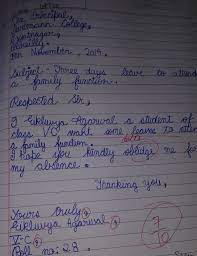 The Principal,
College,
November, 2019.
Subject - Three days leave to attend
a family function.
Respected Sir,
I Eklavya Agarwal a student of
class VC want some leaves to
a family function.
I hope you kindly oblidge me for
my absence.
Thanking you,
Yours truly
Eklavya Agarwal
V-C
Roll no: 28.
7
10